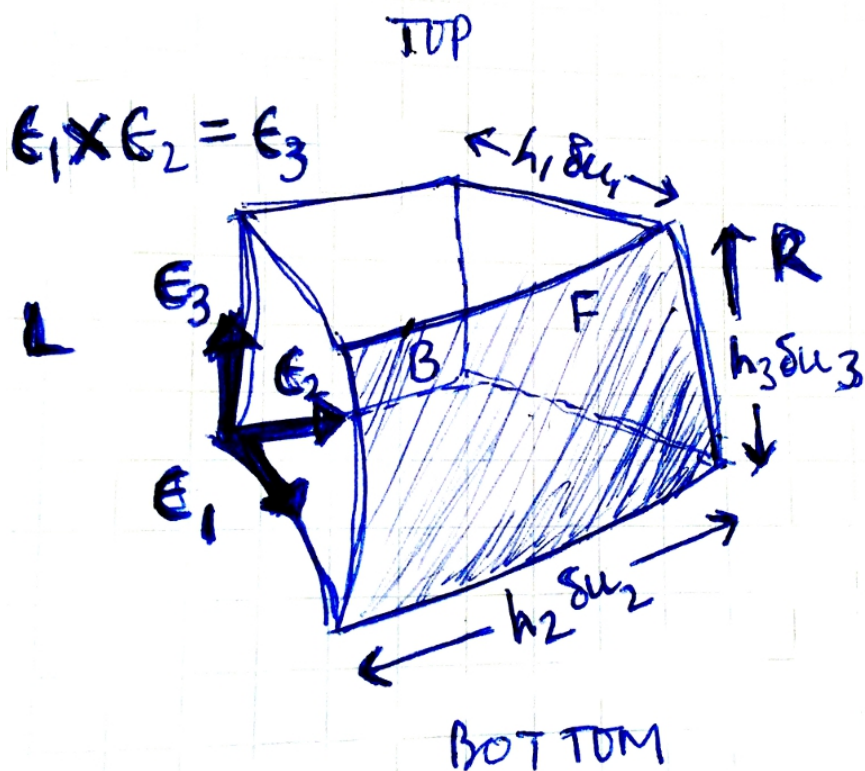 TOP
ϵ₁ × ϵ₂ = ϵ₃
h₁δu₁
R
ϵ₃
F
L
ϵ₂
B
h₃δu₃
ϵ₁
h₂δu₂
BOTTOM